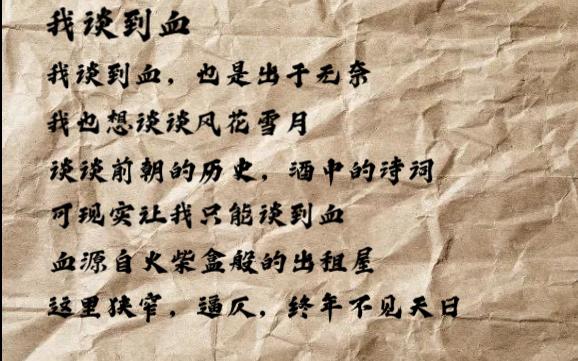 我谈到血
我谈到血，也是出于无奈
我也想谈谈风花雪月
谈谈前朝的历史，酒中的诗词
可现实让我只能谈到血
血源自火柴盒般的出租屋
这里狭窄，逼仄，终年不见天日